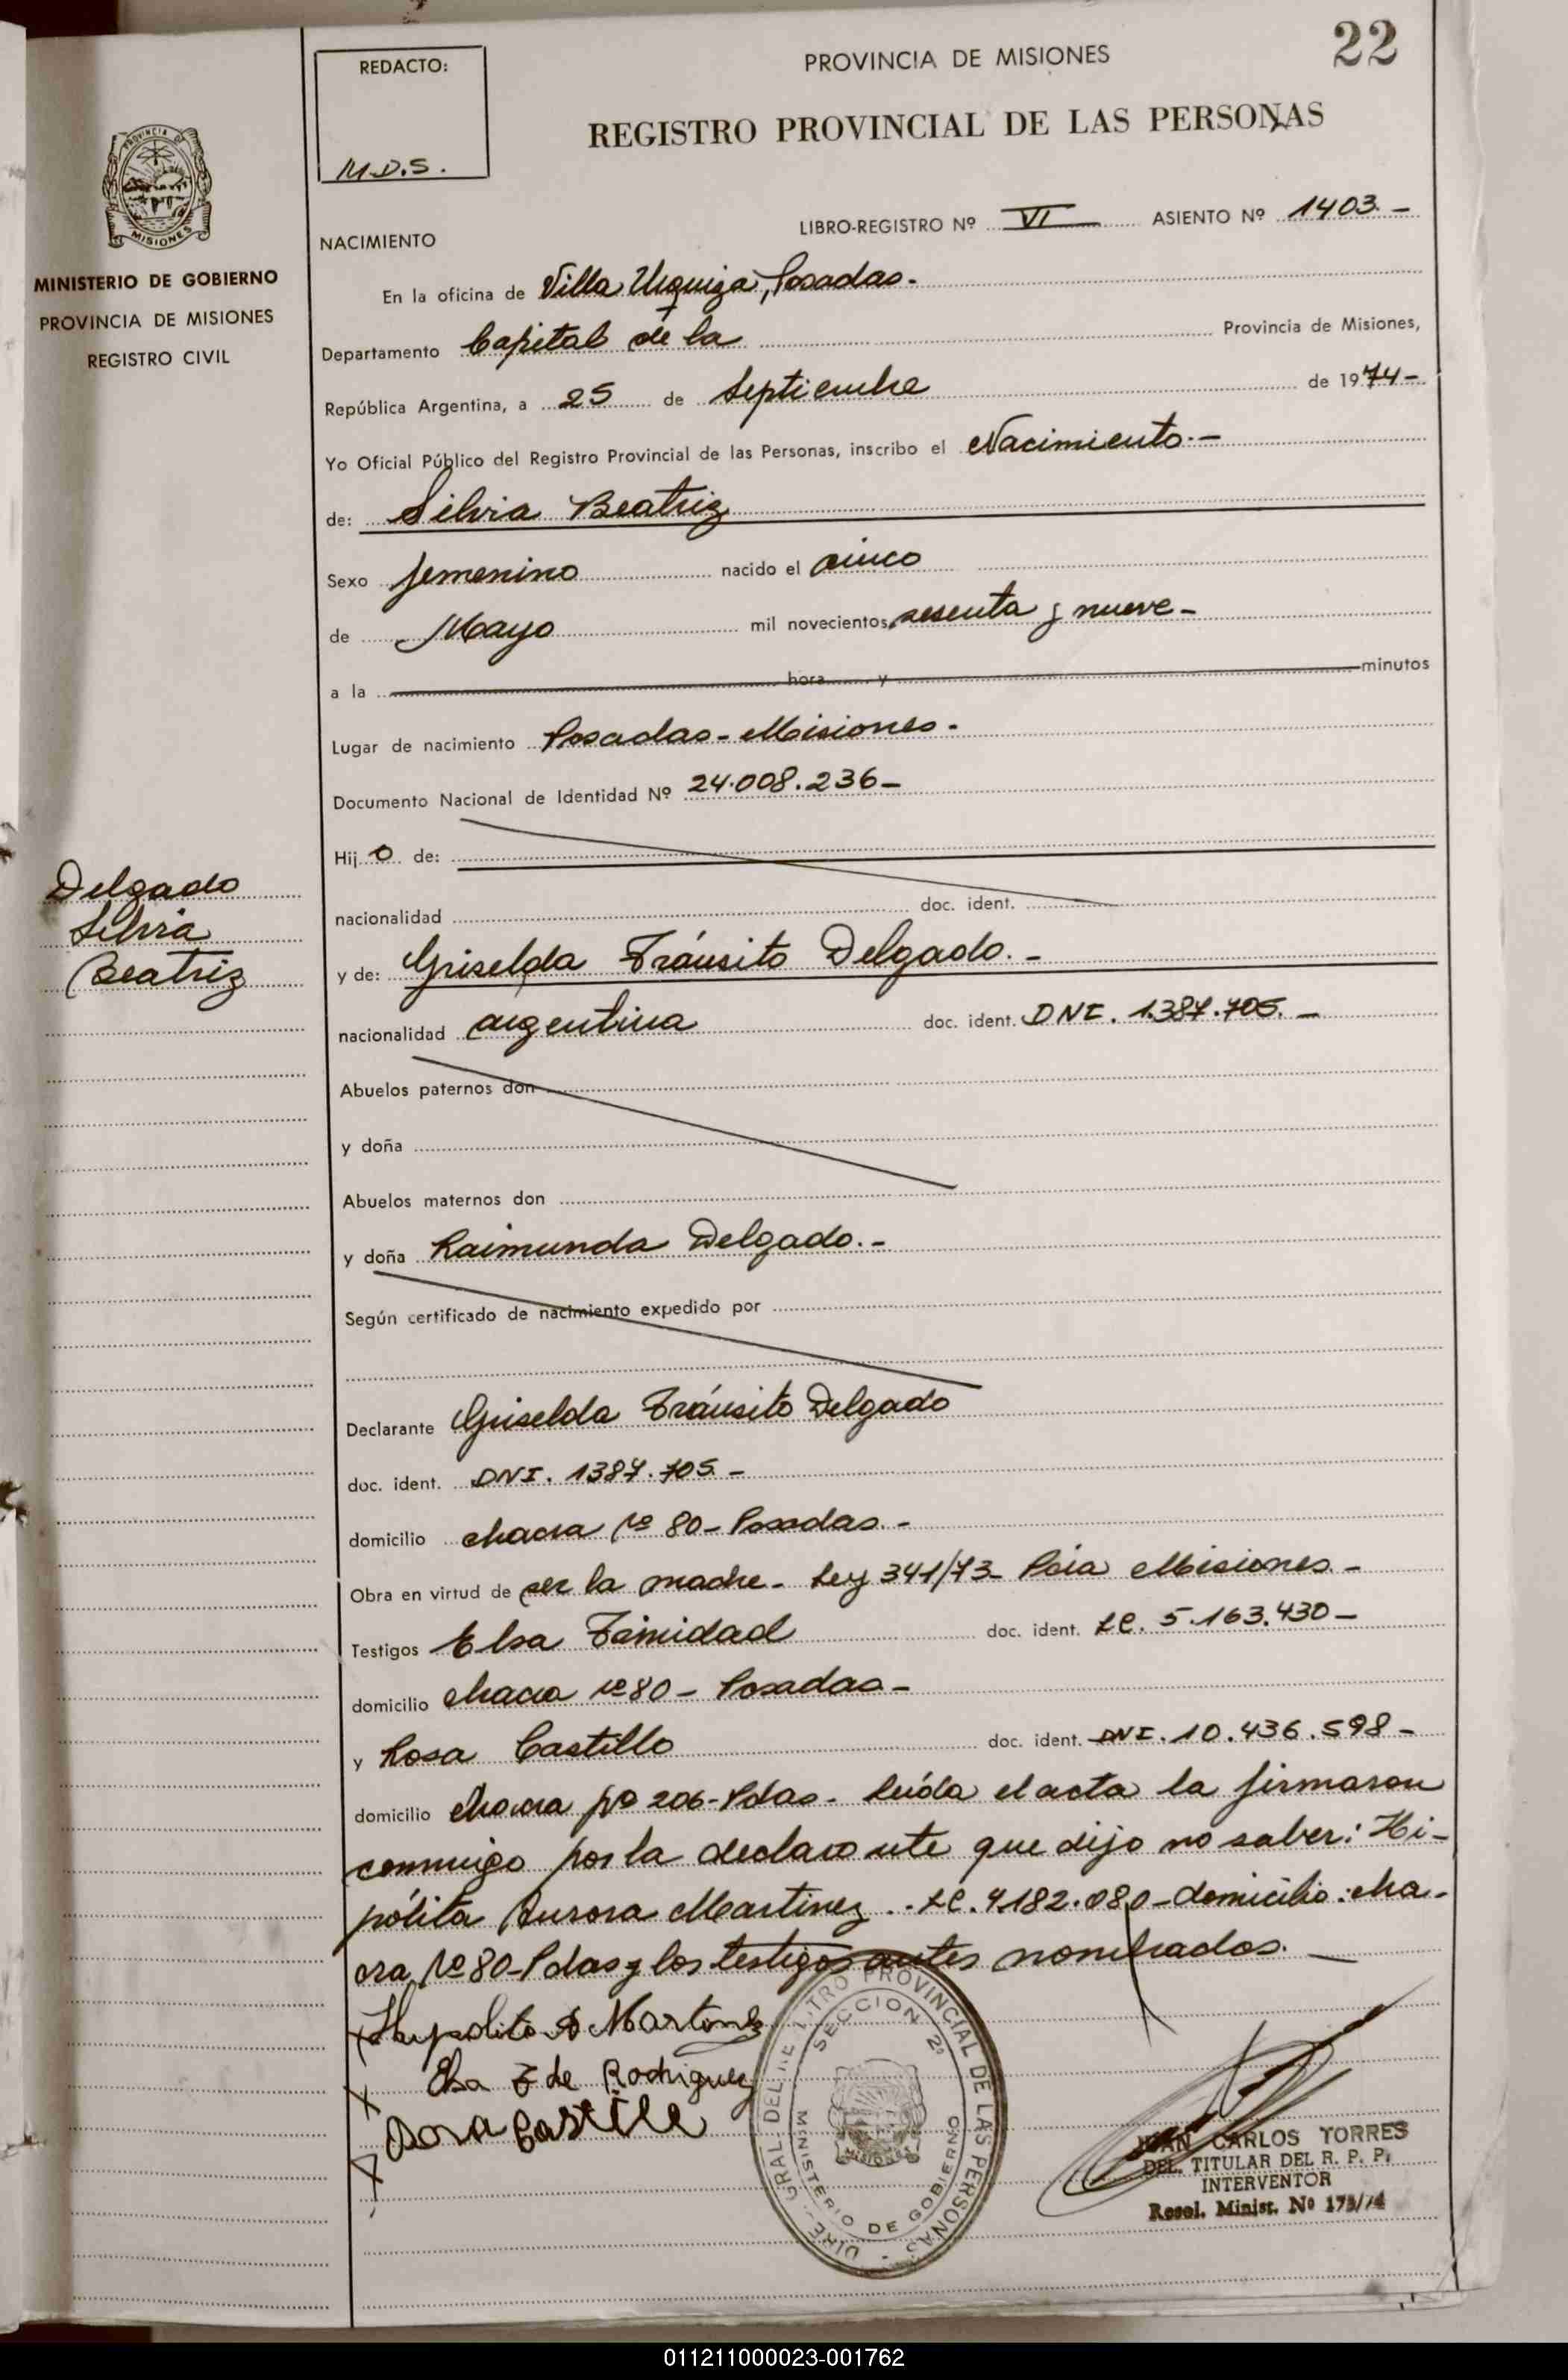 22
REDACTO:
M.D.S.
PROVINCIA DE MISIONES
REGISTRO PROVINCIAL DE LAS PERSONAS
PROVINCIA DE
MISIONES
MINISTERIO DE GOBIERNO
PROVINCIA DE MISIONES
REGISTRO CIVIL
LIBRO-REGISTRO Nº VI ASIENTO Nº 1403.-
NACIMIENTO
En la oficina de Villa Urquiza, Posadas.-
Departamento Capital de la Provincia de Misiones,
República Argentina, a 25 de Septiembre de 1974-
Yo Oficial Público del Registro Provincial de las Personas, inscribo el Nacimiento.-
de: Silvia Beatriz
Sexo femenino nacido el cinco
de Mayo mil novecientos sesenta y nueve-
a la hora y minutos
Lugar de nacimiento Posadas-Misiones-
Documento Nacional de Identidad Nº 24.008.236-
Hij o de:
nacionalidad doc. ident.
Delgado
Silvia
Beatriz
y de: Griselda Tránsito Delgado.-
nacionalidad argentina doc. ident. DNI. 1.387.705.-
Abuelos paternos don
y doña
Abuelos maternos don
y doña Raimunda Delgado.-
Según certificado de nacimiento expedido por
Declarante Griselda Tránsito Delgado
doc. ident. DNI. 1387.705.-
domicilio chacra Nº 80-Posadas.-
Obra en virtud de ser la madre- Ley 341/73- Pcia Misiones.-
Testigos Elsa doc. ident. LC. 5.163.430-
domicilio chacra Nº 80- Posadas-
y Rosa Castillo doc. ident. DNI. 10.436.598-
domicilio chacra Nº 206-Pdas- leída el acta la firmaron
conmigo por la declarante que dijo no saber: Hi-
pólita Aurora Martinez.-LC. 4182.080-domicilio: cha-
cra Nº 80-Pdas y los testigos antes nombrados.
Hypolita A Martinez
Elsa de Rodriguez
Rosa Castillo
PROVINCIAL DE LAS PERSONAS
SECCION 2ª
MISIONES
MINISTERIO DE GOBIERNO
JUAN CARLOS TORRES
DEL. TITULAR DEL R. P. P.
INTERVENTOR
Resol. Minist. Nº 173/74
011211000023-001762